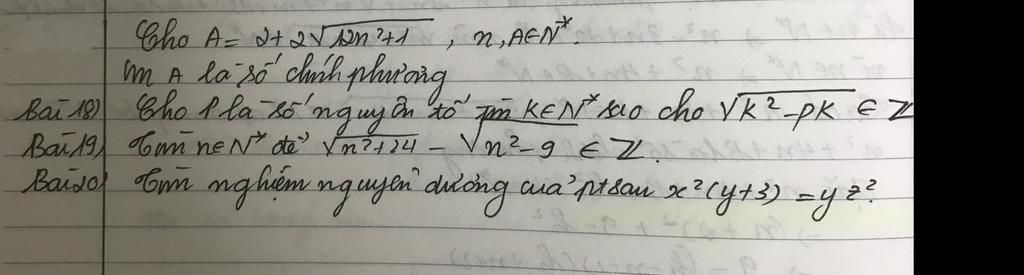 Cho A = 2+2√12n²+1 , n, A∈N*.
Cm A là số chính phương
Bài 18) Cho P là số nguyên tố tìm K∈N* sao cho √k²-pk ∈ Z
Bài 19) Tìm n∈N* để √n²+24 - √n²-9 ∈ Z.
Bài 20) Tìm nghiệm nguyên dương của pt sau x²(y+3) = yz².